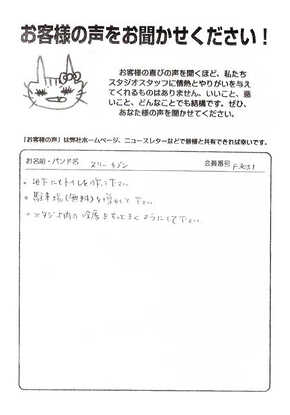 お客様の声をお聞かせください！
お客様の喜びの声を聞くほど、私たち
スタジオスタッフに情熱とやりがいを与え
てくれるものはありません。いいこと、悪
いこと、どんなことでも結構です。ぜひ、
あなた様の声を聞かせてください。
「お客様の声」は弊社ホームページ、ニュースレターなどで皆様と共有できれば幸いです。
お名前・バンド名 スリーセブン 会員番号
・地下にもトイレを作って下さい
・駐車場(無料)を 下さい
・スタジオ内の して下さい